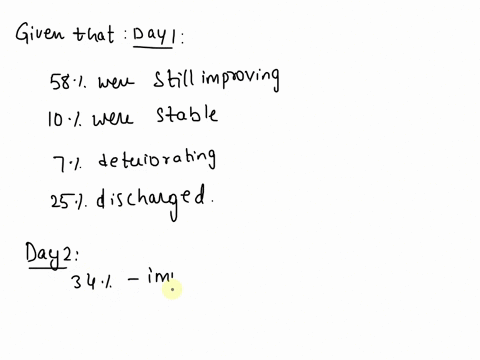 Given that : Day1 :
58% were still improving
10% were stable
7% deteriorating
25% discharged.
Day2:
34% -